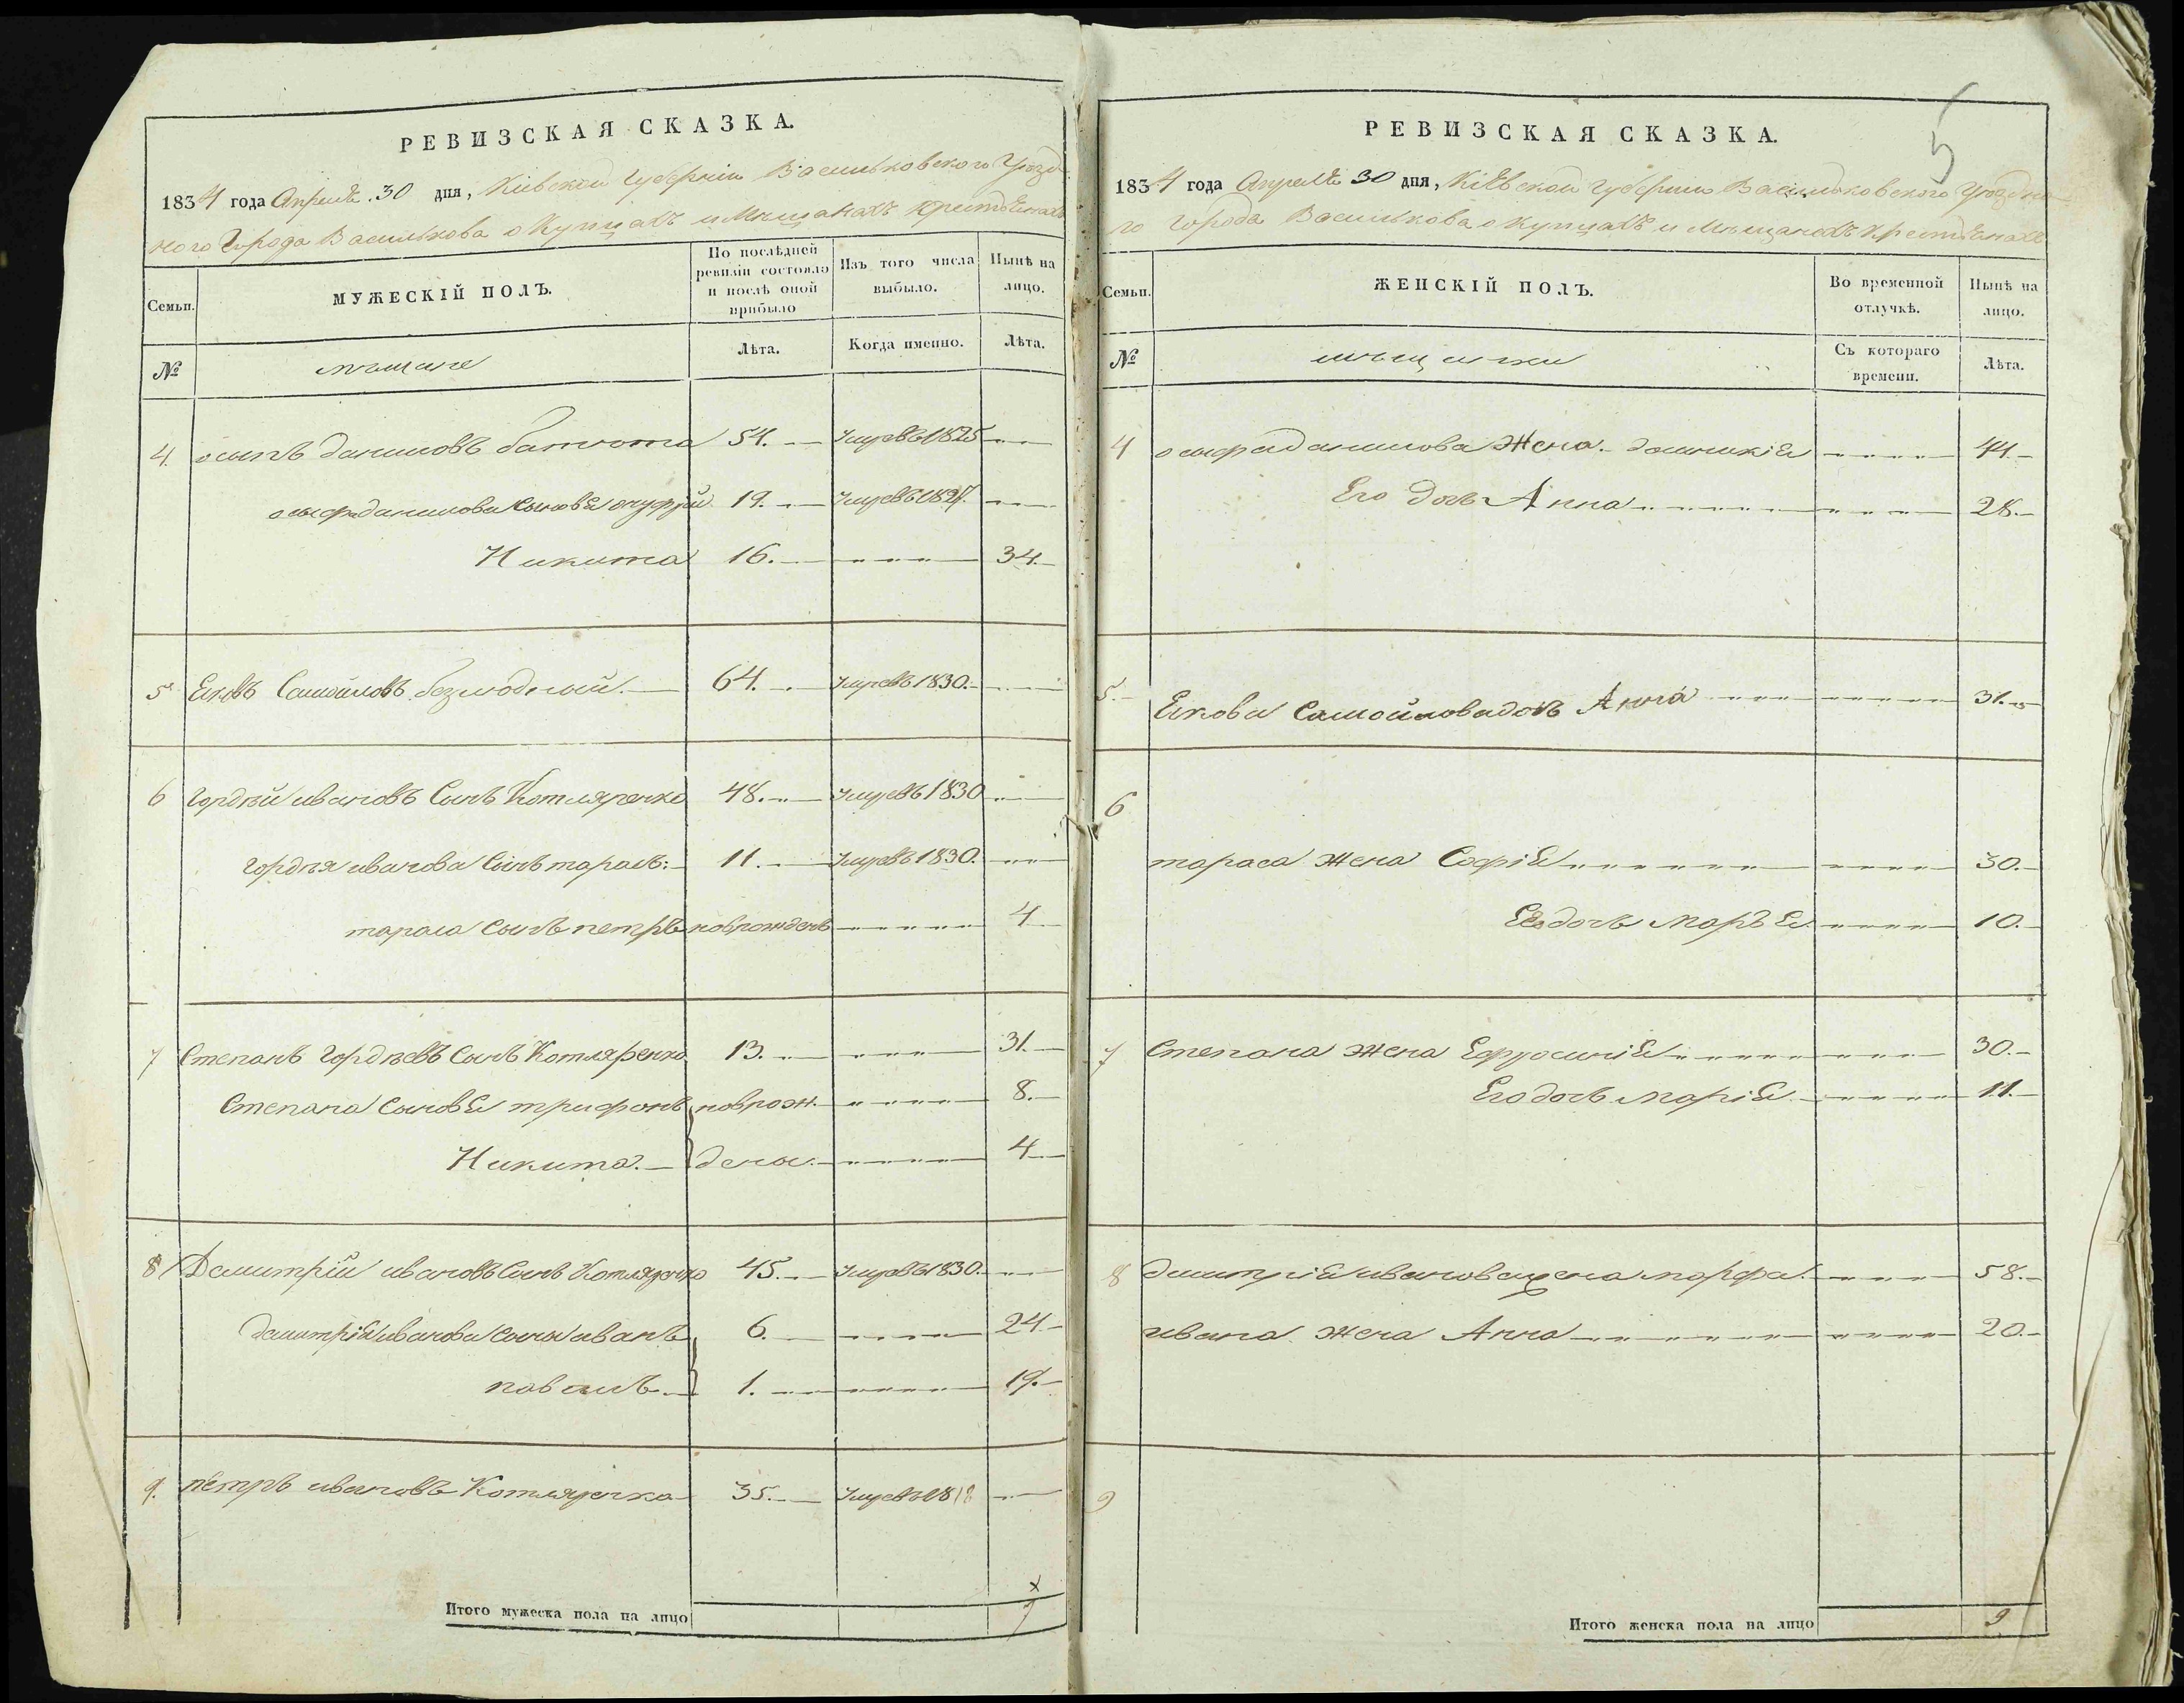 РЕВИЗСКАЯ СКАЗКА.
1834 года Апреля 30 дня, Кіевской Губерніи Васильковского Уезд
ного Города Василькова о Купцахъ и Мещанахъ христіянахъ
Семьи.
МУЖЕСКІЙ ПОЛЪ.
По послѣдней ревизіи состояло и послѣ оной прибыло
Изъ того числа выбыло.
Нынѣ на лицо.
№
мѣщане
Лѣта.
Когда именно.
Лѣта.
4. осипъ даниловъ 54. Умре въ 1825
осифа данилова сыновья онуфрій 19. Умре въ 1827.
Никита 16. 34.
5 Яковъ Самойловъ безлюдный. 64. Умре въ 1830.
6 Гордѣй ивановъ Сынъ Котляренко 48. Умре въ 1830
Гордѣя иванова Сынъ тарасъ: 11. Умре въ 1830.
тараса Сынъ петръ новорожденъ 4
7 Степанъ Гордѣевъ Сынъ Котляренко 13. 31.
Степана Сыновья трифонъ новрож. 8.
Никита. дены. 4
8 Демитрій ивановъ Сынъ Котляренко 45. Умре въ 1830.
демитрія иванова сыны иванъ 6. 24
павелъ 1. 19.
9. петръ ивановъ Котляренко 35. Умре въ 1818
Итого мужеска пола на лицо 7
РЕВИЗСКАЯ СКАЗКА.
5
1834 года Апреля 30 дня, Кіевской Губерніи Васильковского Уездно
го Города Василькова о купцахъ и Мещанахъ христіянахъ
Семьи.
ЖЕНСКІЙ ПОЛЪ.
Во временной отлучкѣ.
Нынѣ на лицо.
№
мѣщанки
Съ котораго времени.
Лѣта.
4 осифа данилова Жена 44.
Его дочь Анна 28.
5. Якова Самойлова дочь Анна 31.
6
тараса жена Софія 30.
Его дочь марья 10.
7 Степана жена Ефросинія 30.
Его дочь марія 11.
8 димитрія иванова жена марфа. 58.
ивана жена Анна 20.
9
Итого женска пола на лицо 9